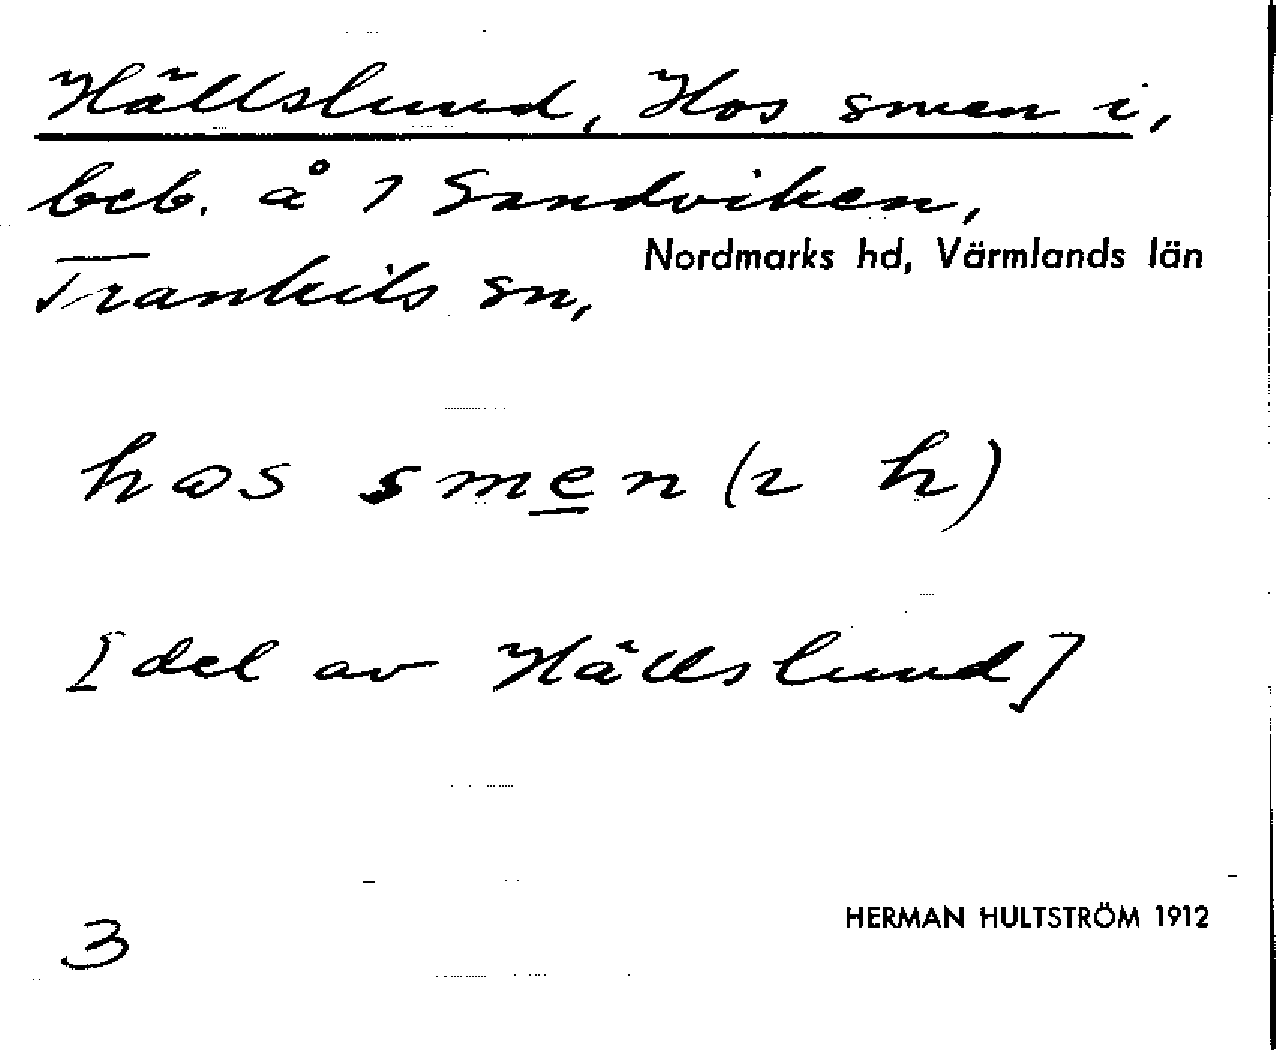 Hällslund, Hos smen i,
beb. å 7 Sandviken,
Nordmarks hd, Värmlands län
Trankils sn,
hos smen (i h)
[del av Hällslund]
HERMAN HULTSTRÖM 1912
3